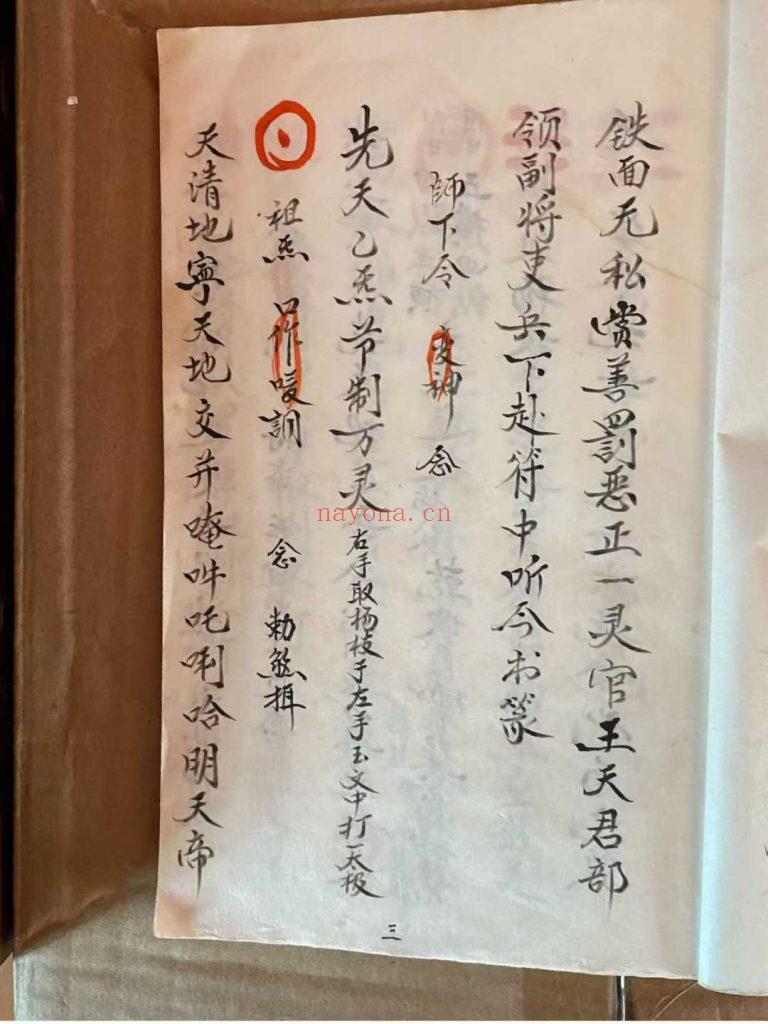 铁面无私赏善罚恶正一灵官王天君部
领副将吏兵下赴符中听令书篆
師下令 变神 念
先天乙炁节制万灵 右手取杨枝于左手玉文中打一太极
祖炁 口作嗳 念 勅煞摄
天清地寧天地交并唵吽吒唎哈明天帝
三
nayona.cn